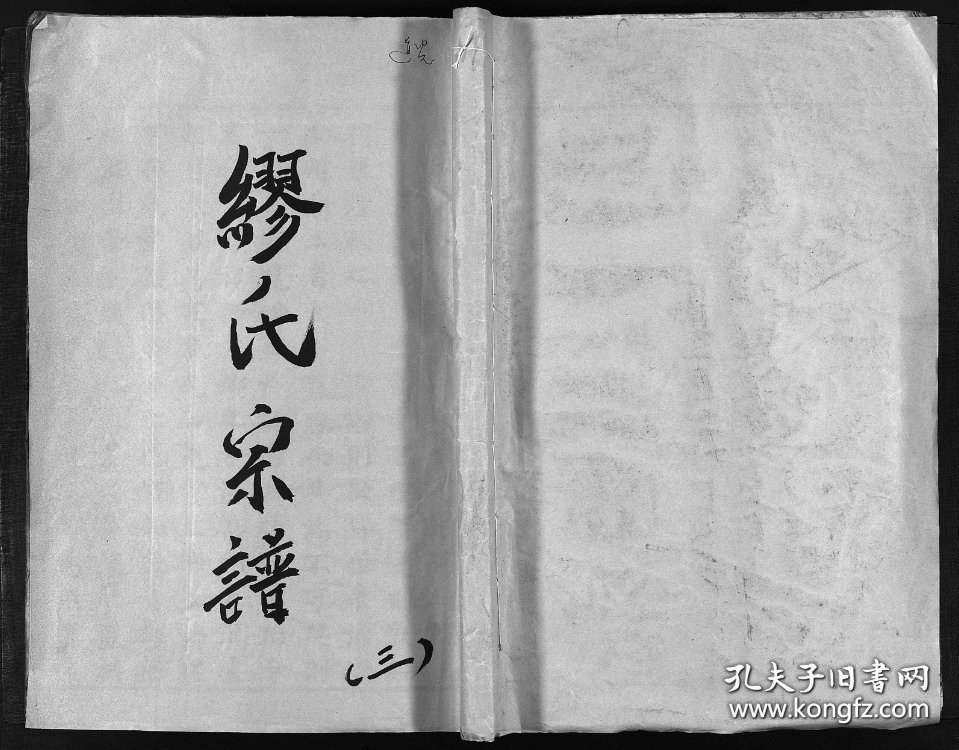 繆氏宗譜
（三）
孔夫子旧書网
www.kongfz.com